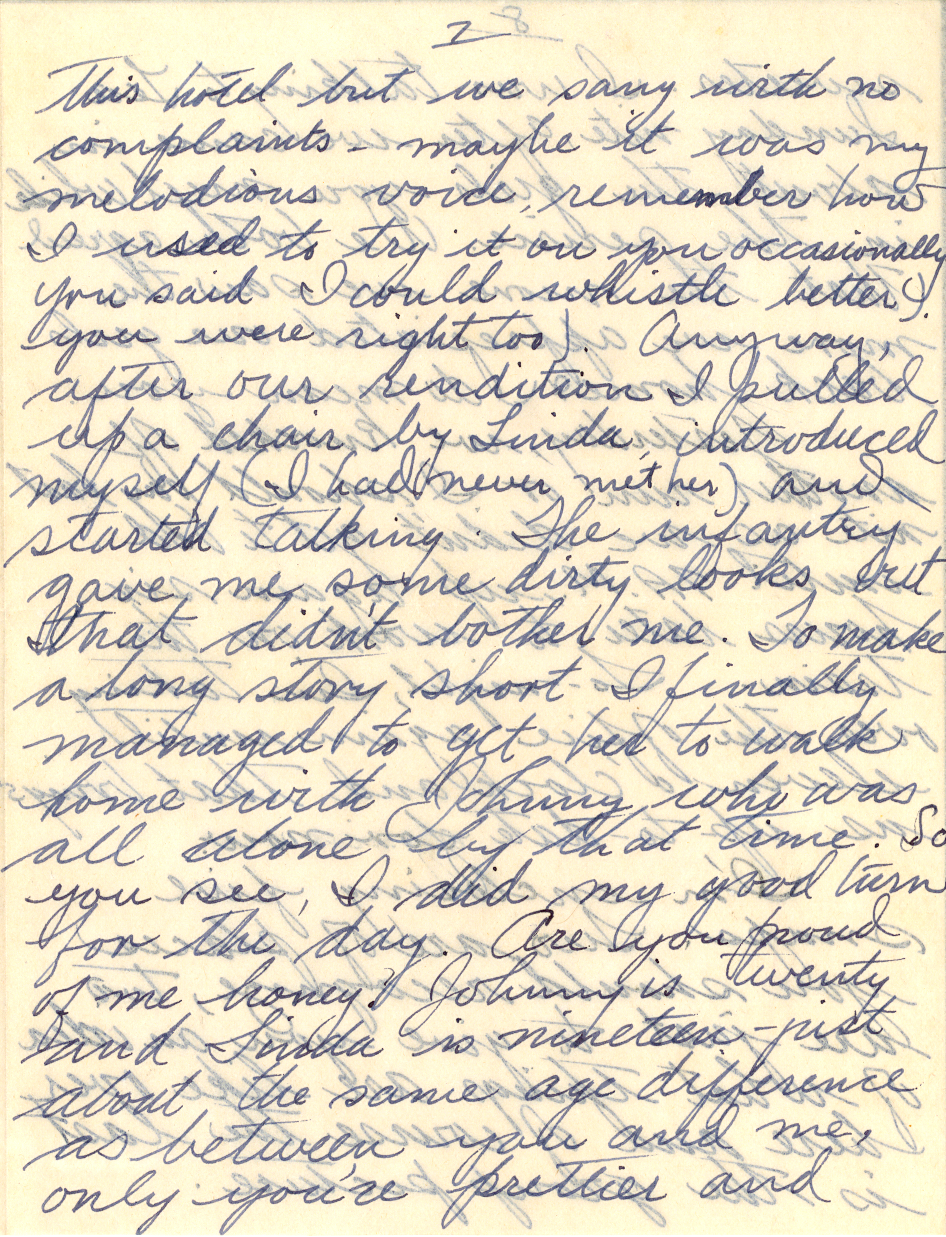 7
This hotel but we sang with no
complaints - maybe it was my
melodious voice, remember how
I used to try it on you occasionally
you said I could whistle better).
you were right too). Anyway,
after our rendition I pulled
up a chair by Linda, introduced
myself (I had never met her) and
started talking. The infantry
gave me some dirty looks but
that didn't bother me. To make
a long story short I finally
managed to get her to walk
home with Johnny who was
all alone by that time. So
you see, I did my good turn
for the day. Are you proud
of me honey? Johnny is twenty
and Linda is nineteen - just
about the same age difference
as between you and me,
only you're prettier and